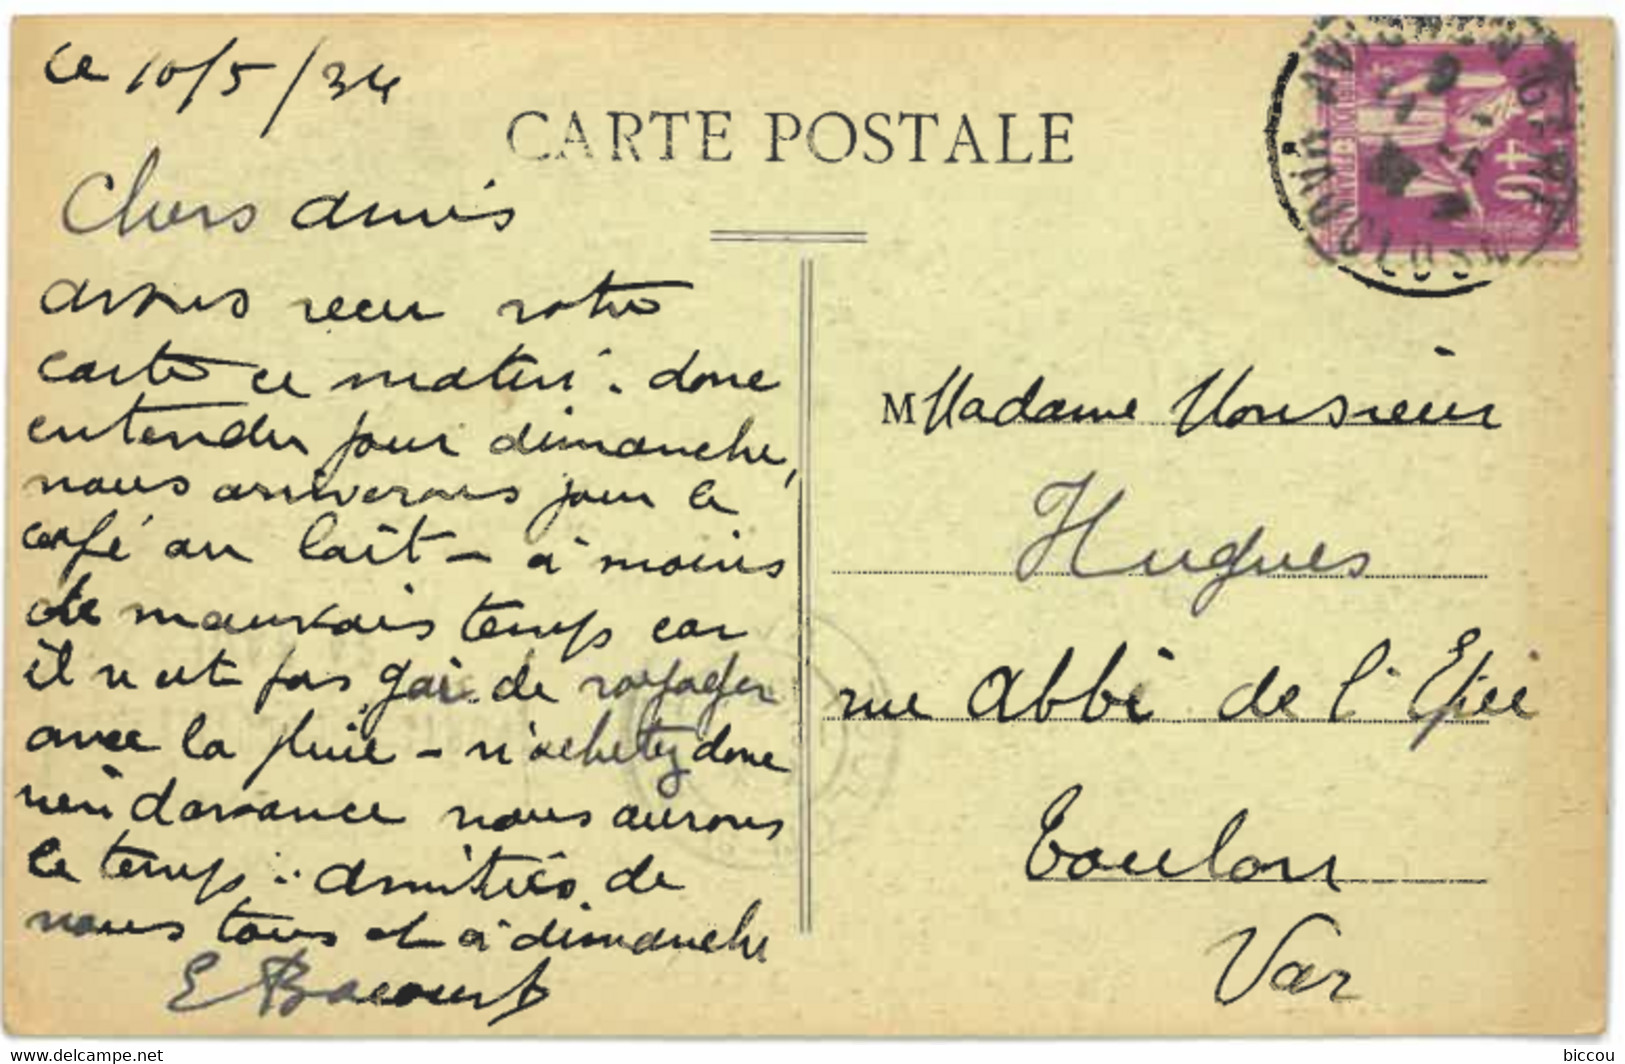 ce 10/5/34
CARTE POSTALE
Chers amis
avons recu votre
carte ce matin. donc
entendu pour dimanche,
nous arriverons pour le
café au lait - à moins
de mauvais temps car
il n'est pas gai de voyager
avec la pluie - n'achetez donc
rien d'avance nous aurons
le temps.. amitiés de
nous tous et à dimanche
E Bacourt
M Madame Monsieur
Hugues
rue Abbé de l'Epée
Toulon
Var
AVIGNON
VAUCLUSE
40
www.delcampe.net
biccou